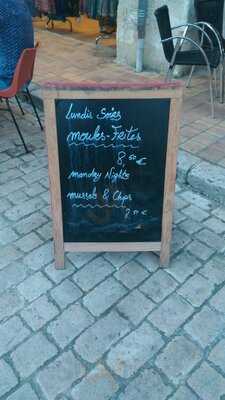 Lundis Soirs
moules-Frites
8 50 €
monday Nights
mussels & Chips
8 50 €